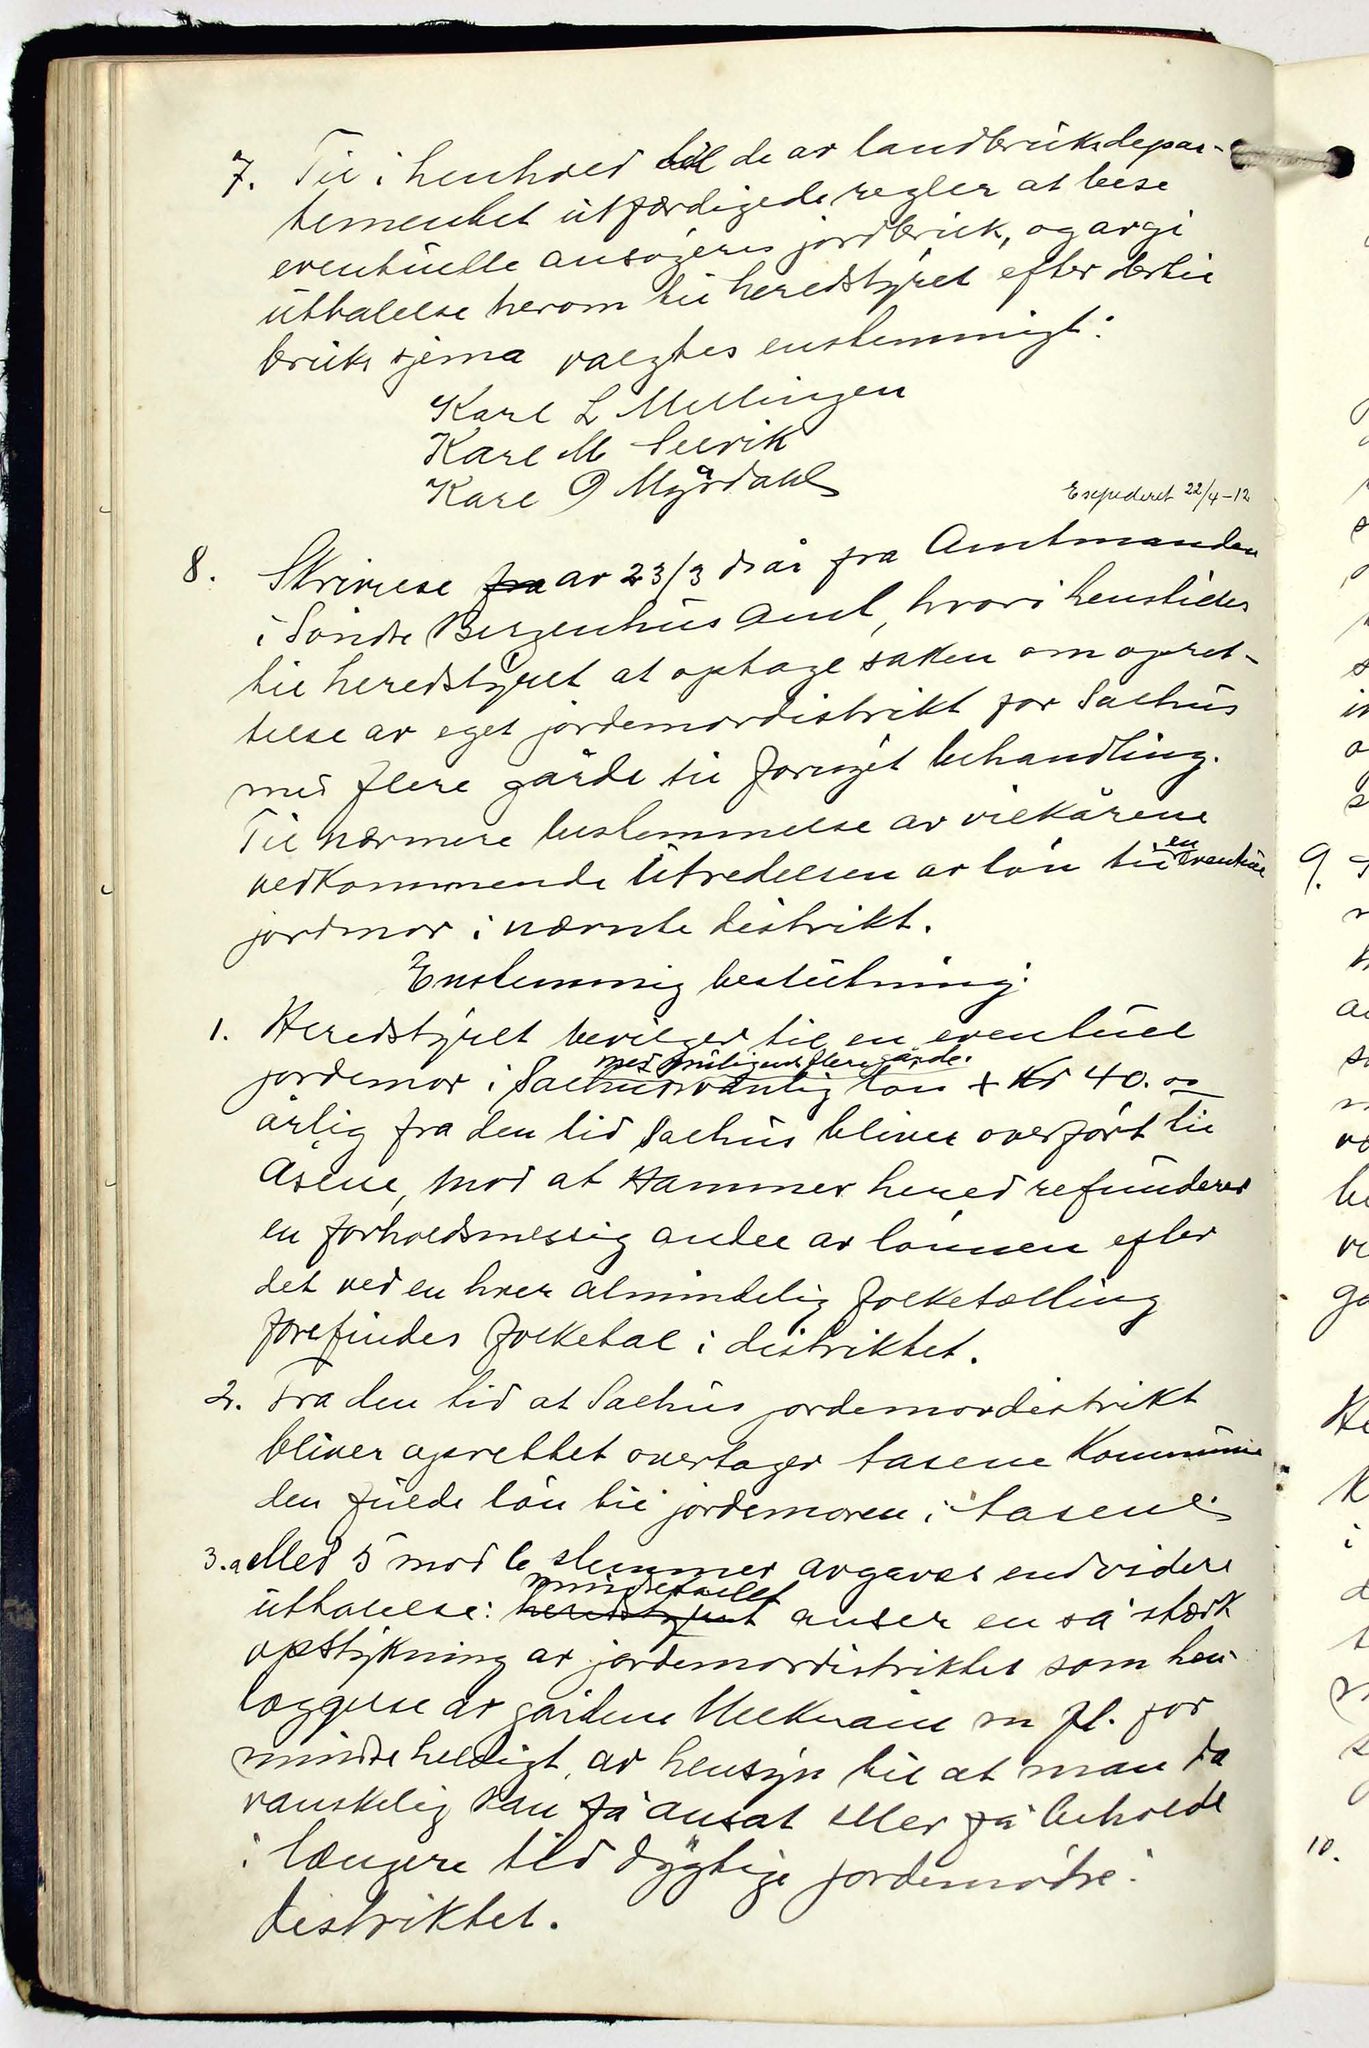 7. Til i henhold til de av landbruksdepar-
tementet utfærdigede regler at bese
eventuelle ansøgeres jordbruk, og avgi
uttalelse herom til heredstyret efter dertil
bruks sjema valgtes enstemmigt:
Karl L Mellingen
Karl M Selvik
Karl O Myrdahl
Expederet 22/4-12
8. Skrivelse fra av 23/3 ds år fra Amtmanden
i Søndre Bergenhus Amt, hvori henstilles
til heredstyret at optage saken om opret-
telse av eget jordemordistrikt for Salhus
med flere gårde til fornyet behandling.
Til nærmere bestemmelse av vilkårene
vedkommende utredelsen av løn til en eventuel
jordmor i nævnte distrikt.
Enstemmig beslutning:
1. Heredstyret bevilger til en eventuel
med muligens flere gårde.
jordemor i Salhus vanlig løn + Kr 40.00
årlig fra den tid Salhus bliver overført til
Åsene, mod at Hammer hered refunderer
en forholdsmessig andel av lønnen efter
det ved en hver almindelig folketælling
forefindes folketal i distriktet.
2. Fra den tid at Salhus jordemordistrikt
bliver oprettet overtager Åsene Kommune
den fulde løn til jordemoren i Åsene.
3. a Med 5 mod 6 stemmer avgaves endvidere
mindretallet
uttalelse: heredstyret anser en så stærk
opstykning av jordemordistriktet som hen-
læggelse av gårdene m fl. for
mindre heldigt, av hensyn til at man da
vanskelig kan få ansat eller få beholde
i længere tid dygtige jordemødre i
distriktet.
9.
10.